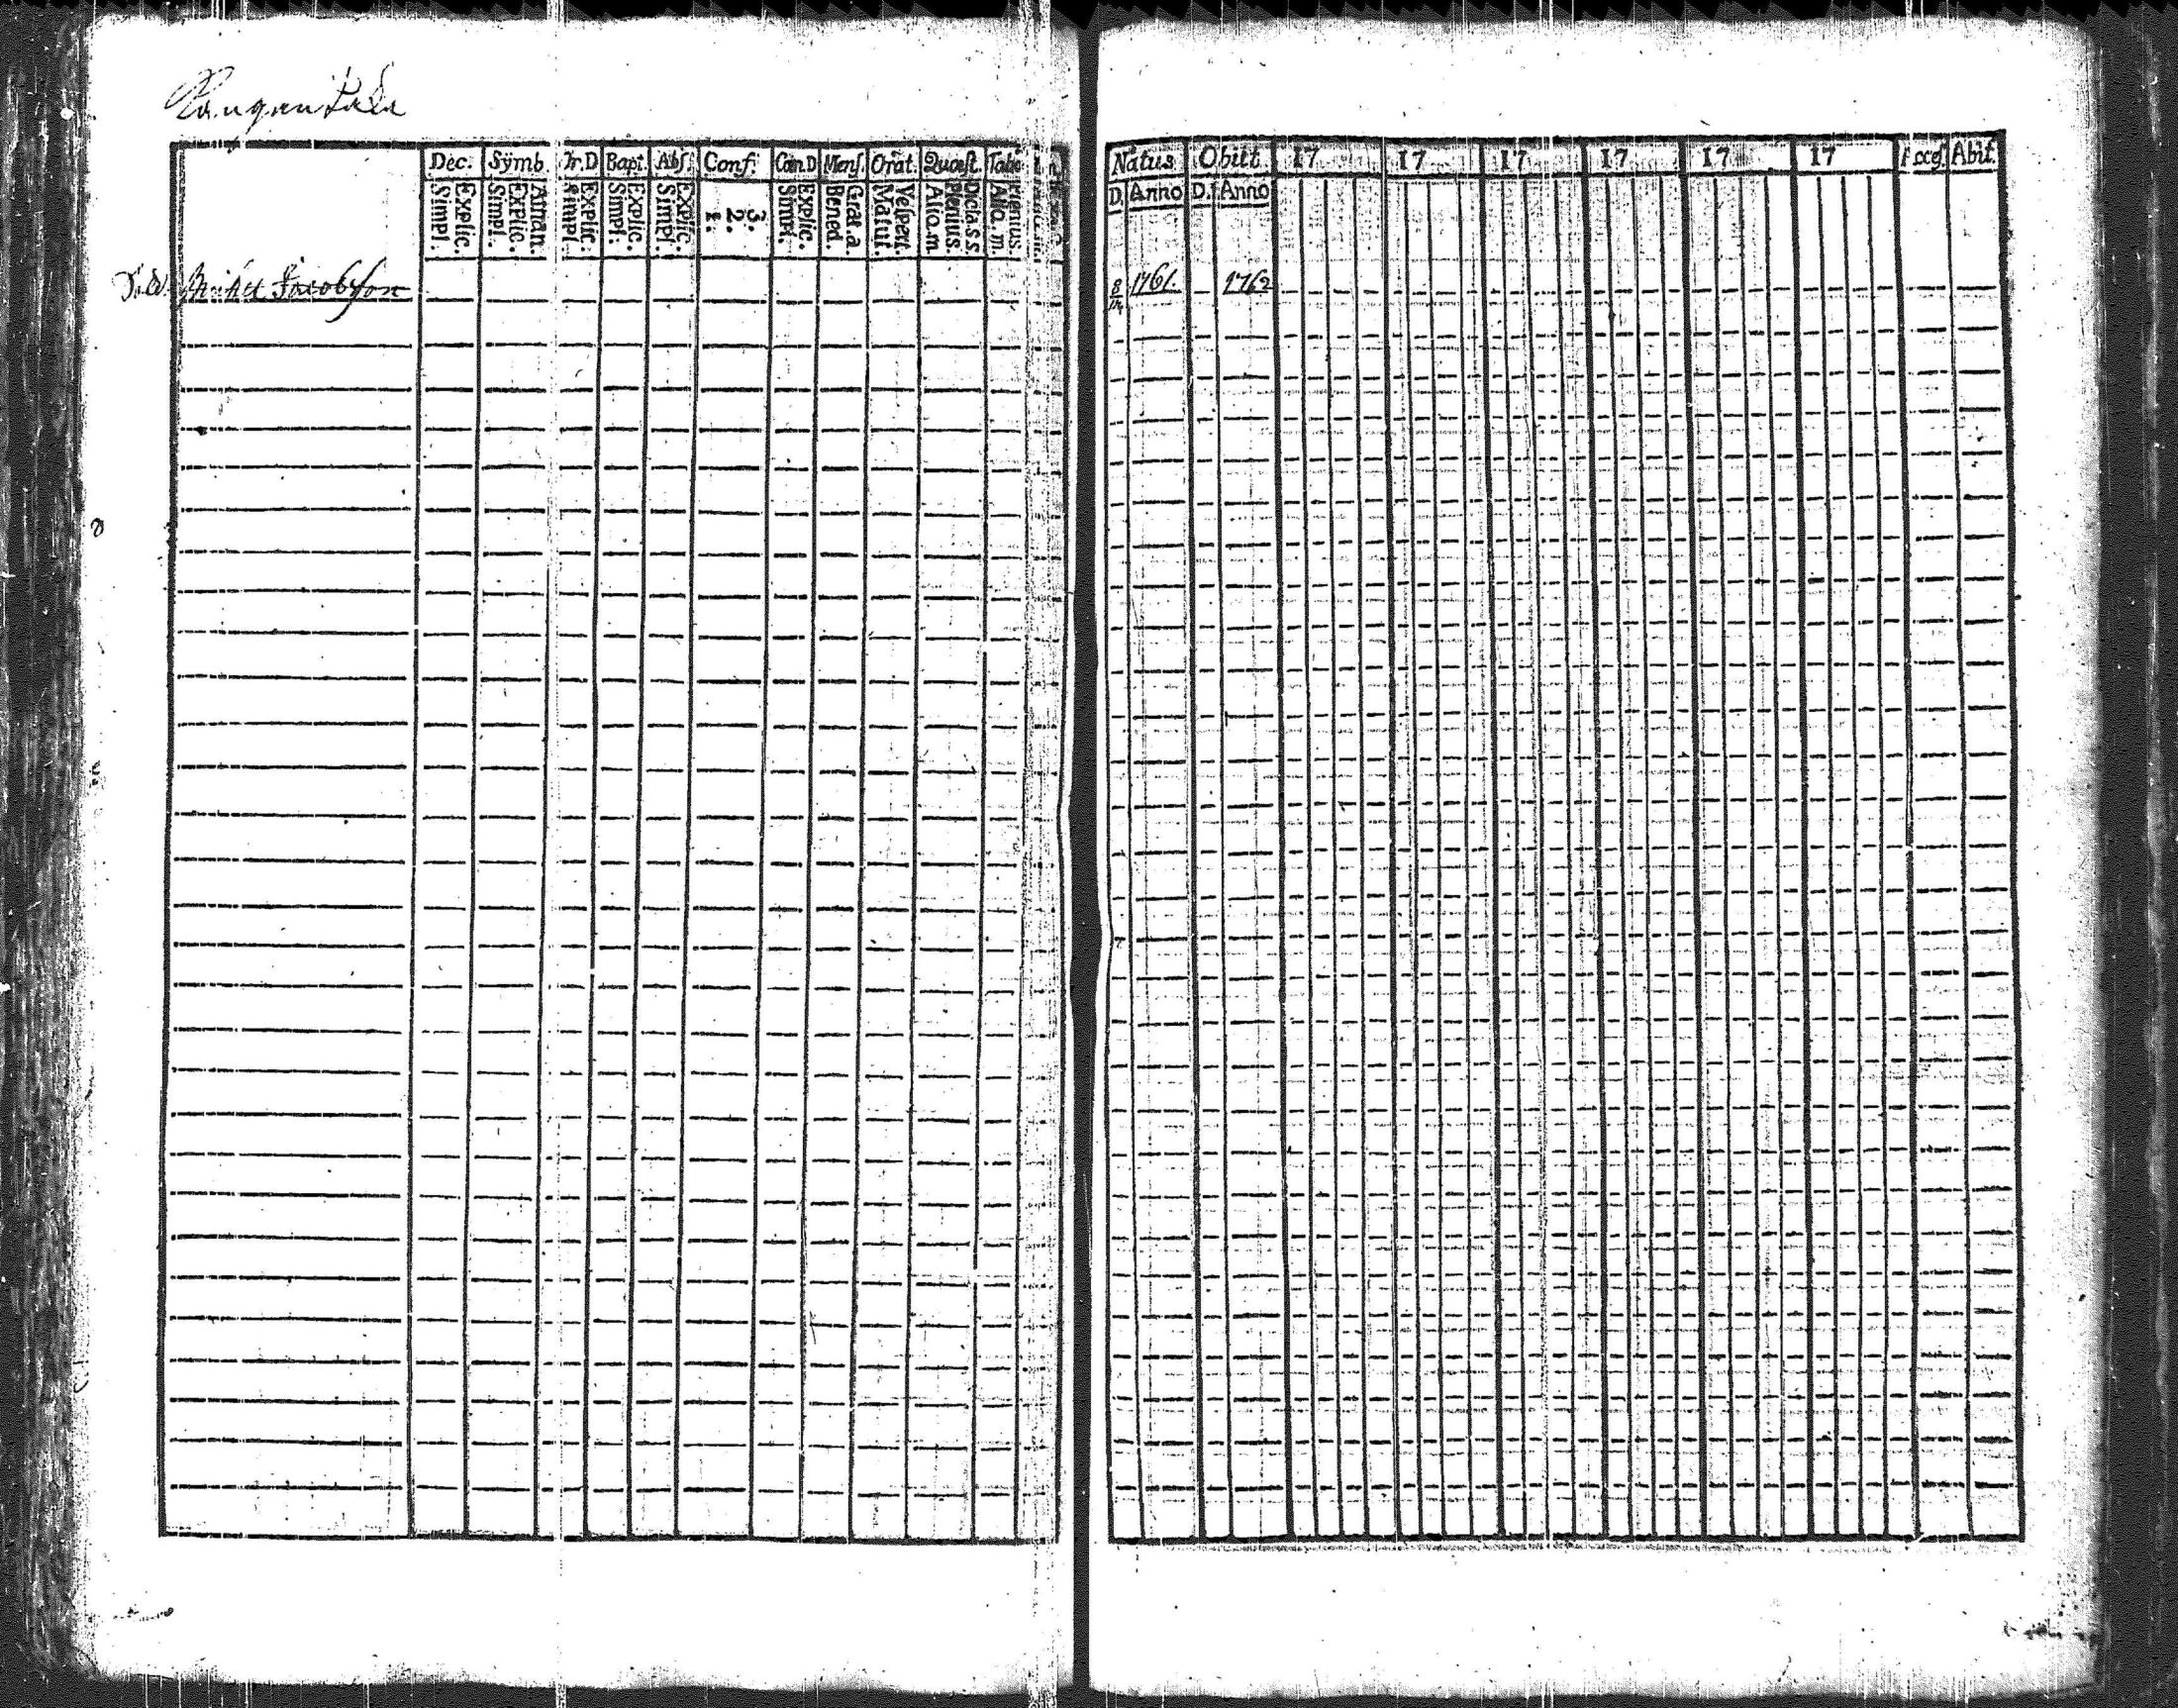 Dec. Symb. Or. D Bapt. Abſ. Conf. Cœn. D Menſ. Orat. Quæſt.
Simpl. Explic. Simpl. Explic. Athan. Simpl. Explic. Simpl. Explic. Simpl. Explic. 1. 2. 3. Simpl. Explic. Bened. Grat. a. Matut. Veſpert. Alio. m. Plenius. Dicta. s s. Alio. m. Plenius.
Jacobſson
Natus Obiit 17 17 17 17 17 17 Acceſ Abit.
D. Anno D. Anno
8 1761. 1762